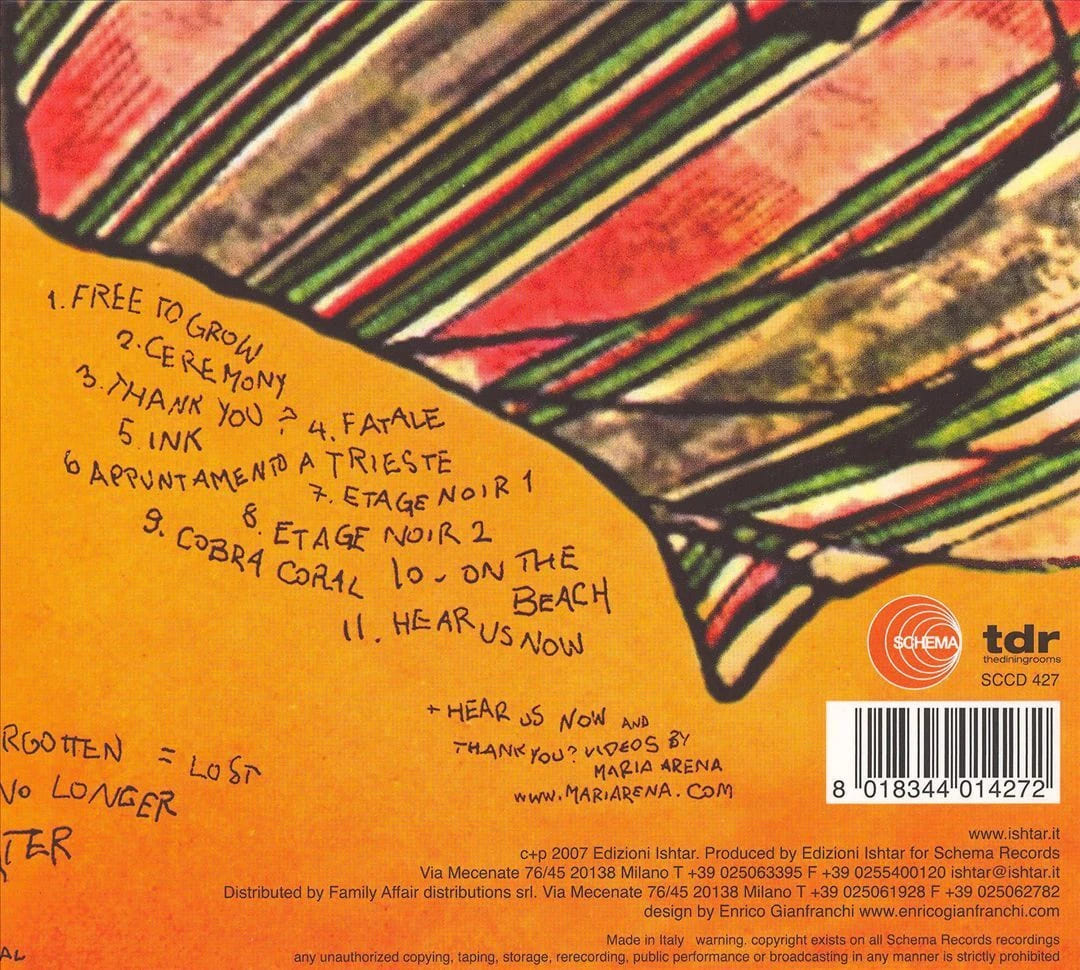 1. FREE TO GROW
2. CEREMONY
3. THANK YOU? 4. FATALE
5 INK
6 APPUNTAMENTO A TRIESTE
7. ETAGE NOIR 1
8. ETAGE NOIR 2
9. COBRA CORAL 10- ON THE
BEACH
11. HEAR US NOW
+ HEAR US NOW AND
THANK YOU? VIDEOS BY
MARIA ARENA
WWW.MARIARENA.COM
RGOTTEN = LOST
NO LONGER
TER
AL
SCHEMA
tdr
thediningrooms
SCCD 427
8 018344 014272
www.ishtar.it
c+p 2007 Edizioni Ishtar. Produced by Edizioni Ishtar for Schema Records
Via Mecenate 76/45 20138 Milano T +39 025063395 F +39 0255400120 ishtar@ishtar.it
Distributed by Family Affair distributions srl. Via Mecenate 76/45 20138 Milano T +39 025061928 F +39 025062782
design by Enrico Gianfranchi www.enricogianfranchi.com
Made in Italy warning. copyright exists on all Schema Records recordings
any unauthorized copying, taping, storage, rerecording, public performance or broadcasting in any manner is strictly prohibited